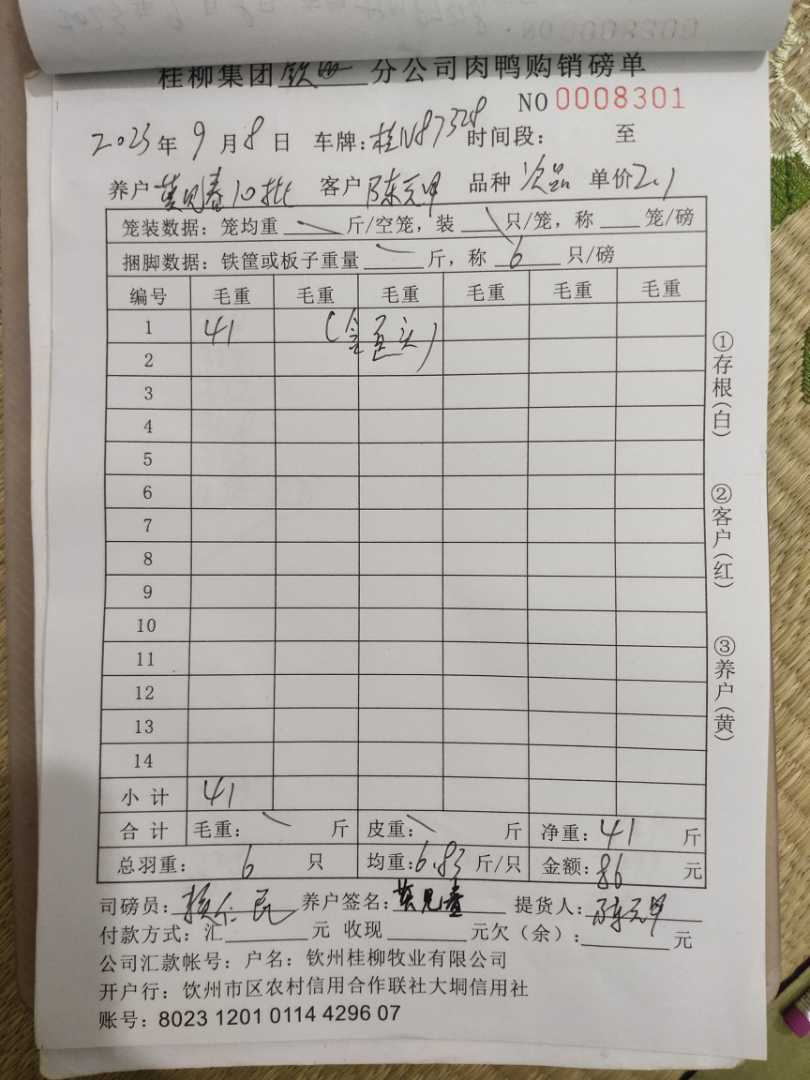 桂柳集团钦州分公司肉鸭购销磅单
NO 0008301
2023年9月8日 车牌:桂N87328 时间段: 至
养户 黄见春10批 客户 陈元甲 品种 次品 单价2.1
笼装数据:笼均重 斤/空笼,装 只/笼,称 笼/磅
捆脚数据:铁筐或板子重量 斤,称 6 只/磅
编号 毛重 毛重 毛重 毛重 毛重 毛重
1 41
2
3
4
5
6
7
8
9
10
11
12
13
14
小计 41
合计 毛重: 斤 皮重: 斤 净重:41 斤
总羽重: 6 只 均重:6.83 斤/只 金额:86 元
司磅员: 养户签名:黄见春 提货人:陈元甲
付款方式:汇 元 收现 元欠(余): 元
公司汇款帐号:户名:钦州桂柳牧业有限公司
开户行:钦州市区农村信用合作联社大垌信用社
账号:8023 1201 0114 4296 07
①存根(白)
②客户(红)
③养户(黄)